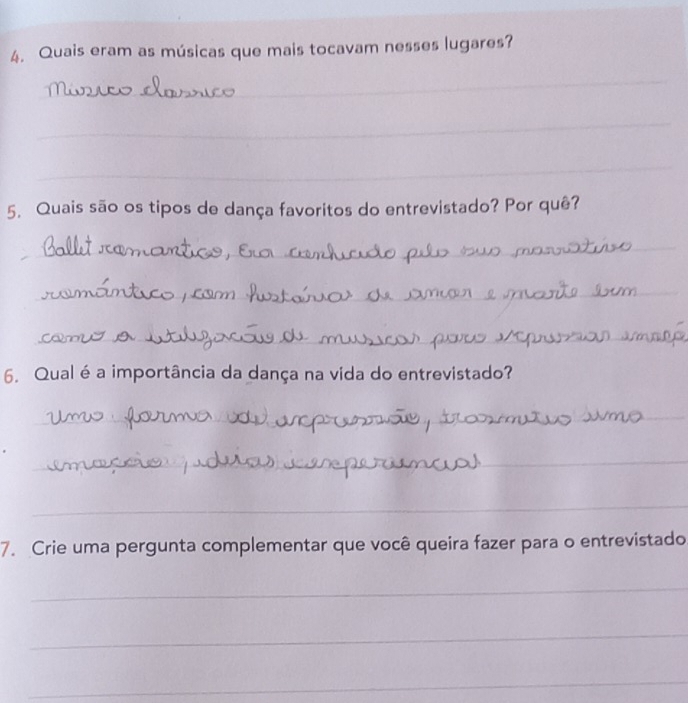 4. Quais eram as músicas que mais tocavam nesses lugares?
Musica classica
5. Quais são os tipos de dança favoritos do entrevistado? Por quê?
Ballet romantico, Era conhecido pelo sua narrativa
romántica, com histórias de amor e morte bem
como a utilização de musicas para expressar emoçõ
6. Qual é a importância da dança na vida do entrevistado?
uma forma de expressão, trasmitir uma
emoção, ideias experiencias
7. Crie uma pergunta complementar que você queira fazer para o entrevistado